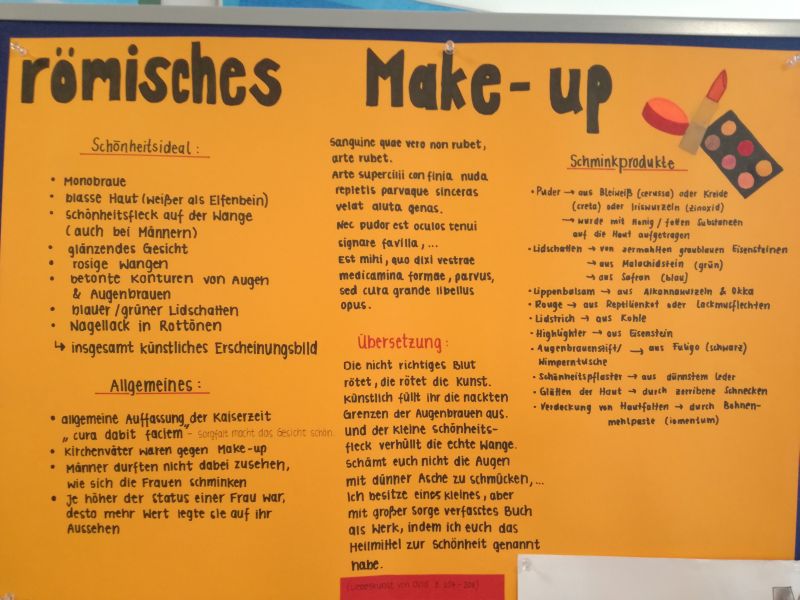 römisches Make-up
Schönheitsideal:
• Monobraue
• blasse Haut (weißer als Elfenbein)
• Schönheitsfleck auf der Wange
(auch bei Männern)
• glänzendes Gesicht
• rosige Wangen
• betonte Konturen von Augen
& Augenbrauen
• blauer/grüner Lidschatten
• Nagellack in Rottönen
↳ insgesamt künstliches Erscheinungsbild
Allgemeines:
• allgemeine Auffassung der Kaiserzeit
„cura dabit faciem" - sorgfalt macht das Gesicht schön
• Kirchenväter waren gegen Make-up
• Männer durften nicht dabei zusehen,
wie sich die Frauen schminken
• Je höher der Status einer Frau war,
desto mehr Wert legte sie auf ihr
Aussehen
Sanguine quae vero non rubet,
arte rubet.
Arte supercilii confinia nuda
repletis parvaque sinceras
velat aluta genas.
Nec pudor est oculos tenui
signare favilla, ...
Est mihi, quo dixi vestrae
medicamina formae, parvus,
sed cura grande libellus
opus.
Übersetzung:
Die nicht richtiges Blut
rötet, die rötet die Kunst.
Künstlich füllt ihr die nackten
Grenzen der Augenbrauen aus.
und der kleine Schönheits-
fleck verhüllt die echte Wange.
Schämt euch nicht die Augen
mit dünner Asche zu schmücken,...
Ich besitze eines kleines, aber
mit großer Sorge verfasstes Buch
als Werk, indem ich euch das
Heilmittel zur Schönheit genannt
habe.
(Liebeskunst von Ovid
Schminkprodukte
• Puder → aus Bleiweiß (cerussa) oder Kreide
(creta) oder Iriswurzeln (Zinoxid)
→ wurde mit Honig / fetten Substanzen
auf die Haut aufgetragen
• Lidschatten → von zermahlten graublauen Eisensteinen
→ aus Malachidstein (grün)
→ aus Safran (blau)
• Lippenbalsam → aus Alkannawurzeln & Okka
• Rouge → aus Reptilienkot oder Lackmusflechten
• Lidstrich → aus Kohle
• Highlighter → aus Eisenstein
• Augenbrauenstift/ → aus Fuligo (schwarz)
Wimperntusche
• Schönheitspflaster → aus dünnstem Leder
• Glätten der Haut → durch zerribene Schnecken
• Verdeckung von Hautfalten → durch Bohnen-
mehlpaste (lomentum)